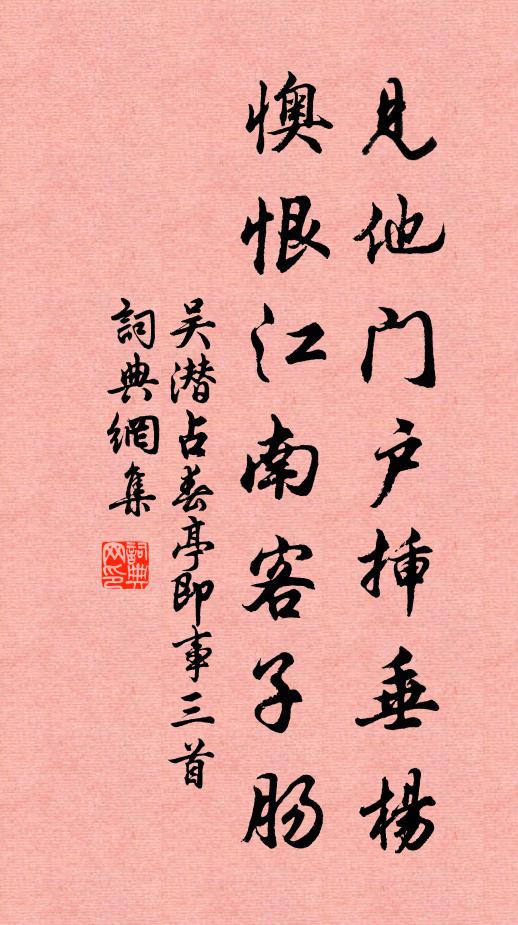 见他门户插垂杨
懊恨江南客子肠
吴潜占春亭即事三首
詞典網集
詞典網印